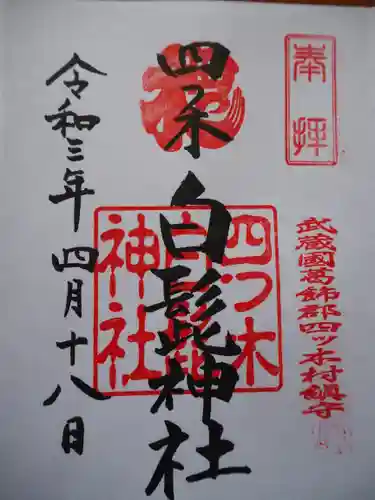 奉拝
武蔵國葛飾郡四ッ木村鎮守
四ツ木
白髭神社
四つ木
白髭
神社
令和三年四月十八日